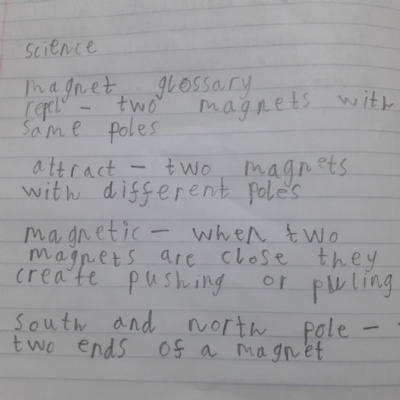 science
magnet glossary
repel - two magnets with
same poles
attract - two magnets
with different poles
magnetic - when two
magnets are close they
create pushing or puling
south and north pole -
two ends of a magnet